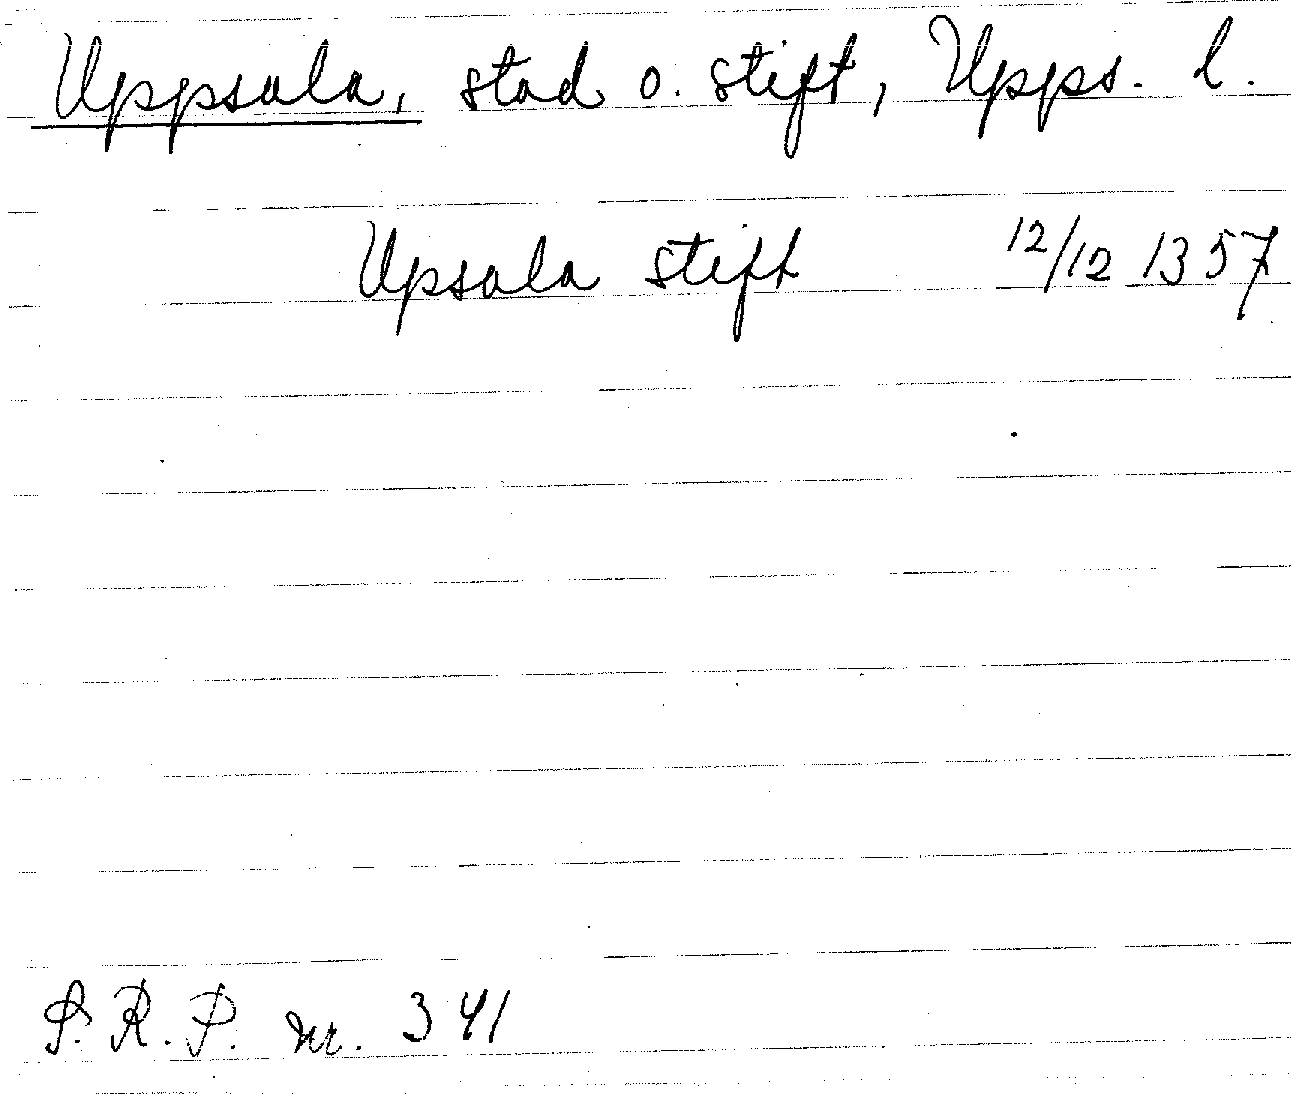 Uppsala, stad o. stift, Upps. l.
Upsala stift 12/12 1357
S.R.P. nr. 341